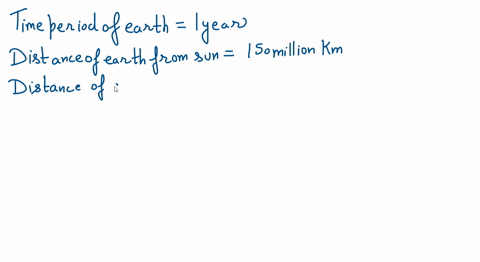 Time period of earth = 1 year
Distance of earth from sun = 150 million Km
Distance of